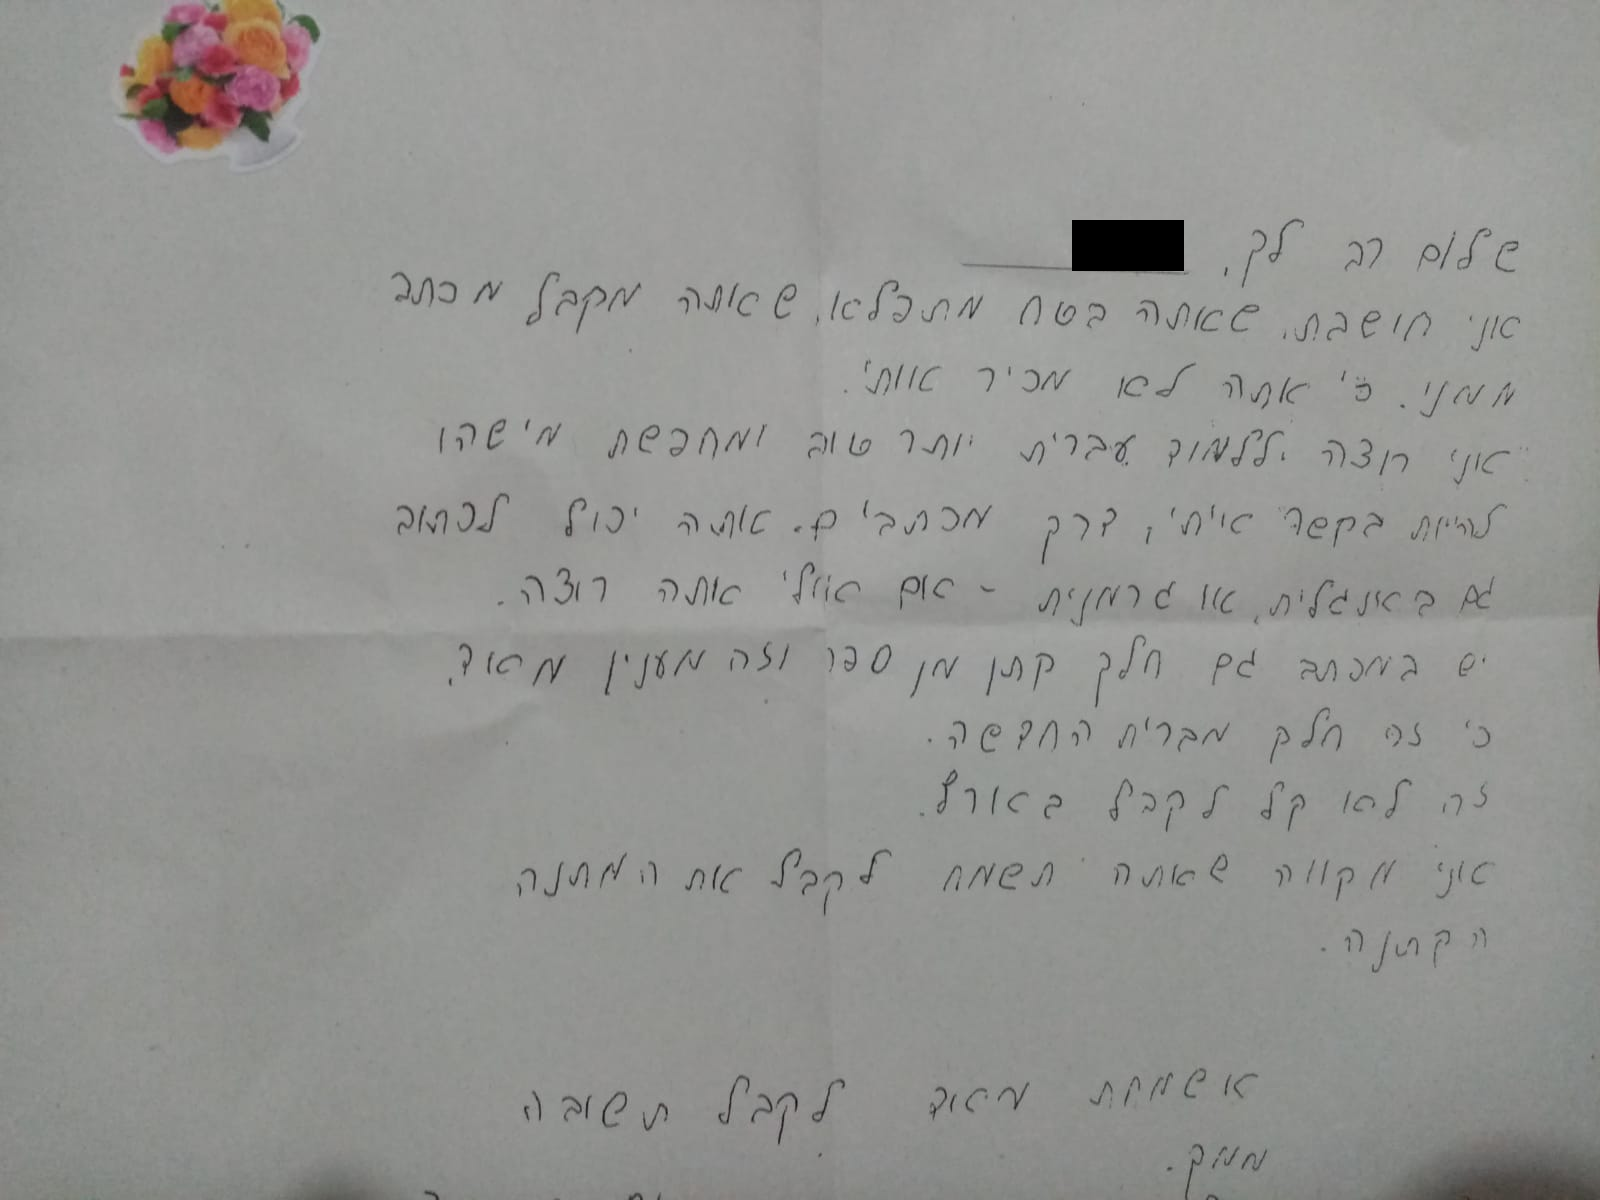 שלום רב לך,
אני חושבת, שאתה בטח מתפלא, שאתה מקבל מכתב
ממני. כי אתה לא מכיר אותי.
אני רוצה ללמוד עברית יותר טוב ומחפשת מישהו
להיות בקשר איתי, דרך מכתבים. אתה יכול לכתוב
גם באינגלית, או גרמנית - אם אולי אתה רוצה.
יש במכתב גם חלק קתן מן ספר וזה מענין מאוד,
כי זה חלק מברית החדשה.
זה לא קל לקבל בארץ.
אני מקווה שאתה תשמח לקבל את המתנה
הקתנה.
אשמחת מאוד לקבל תשובה
ממך.